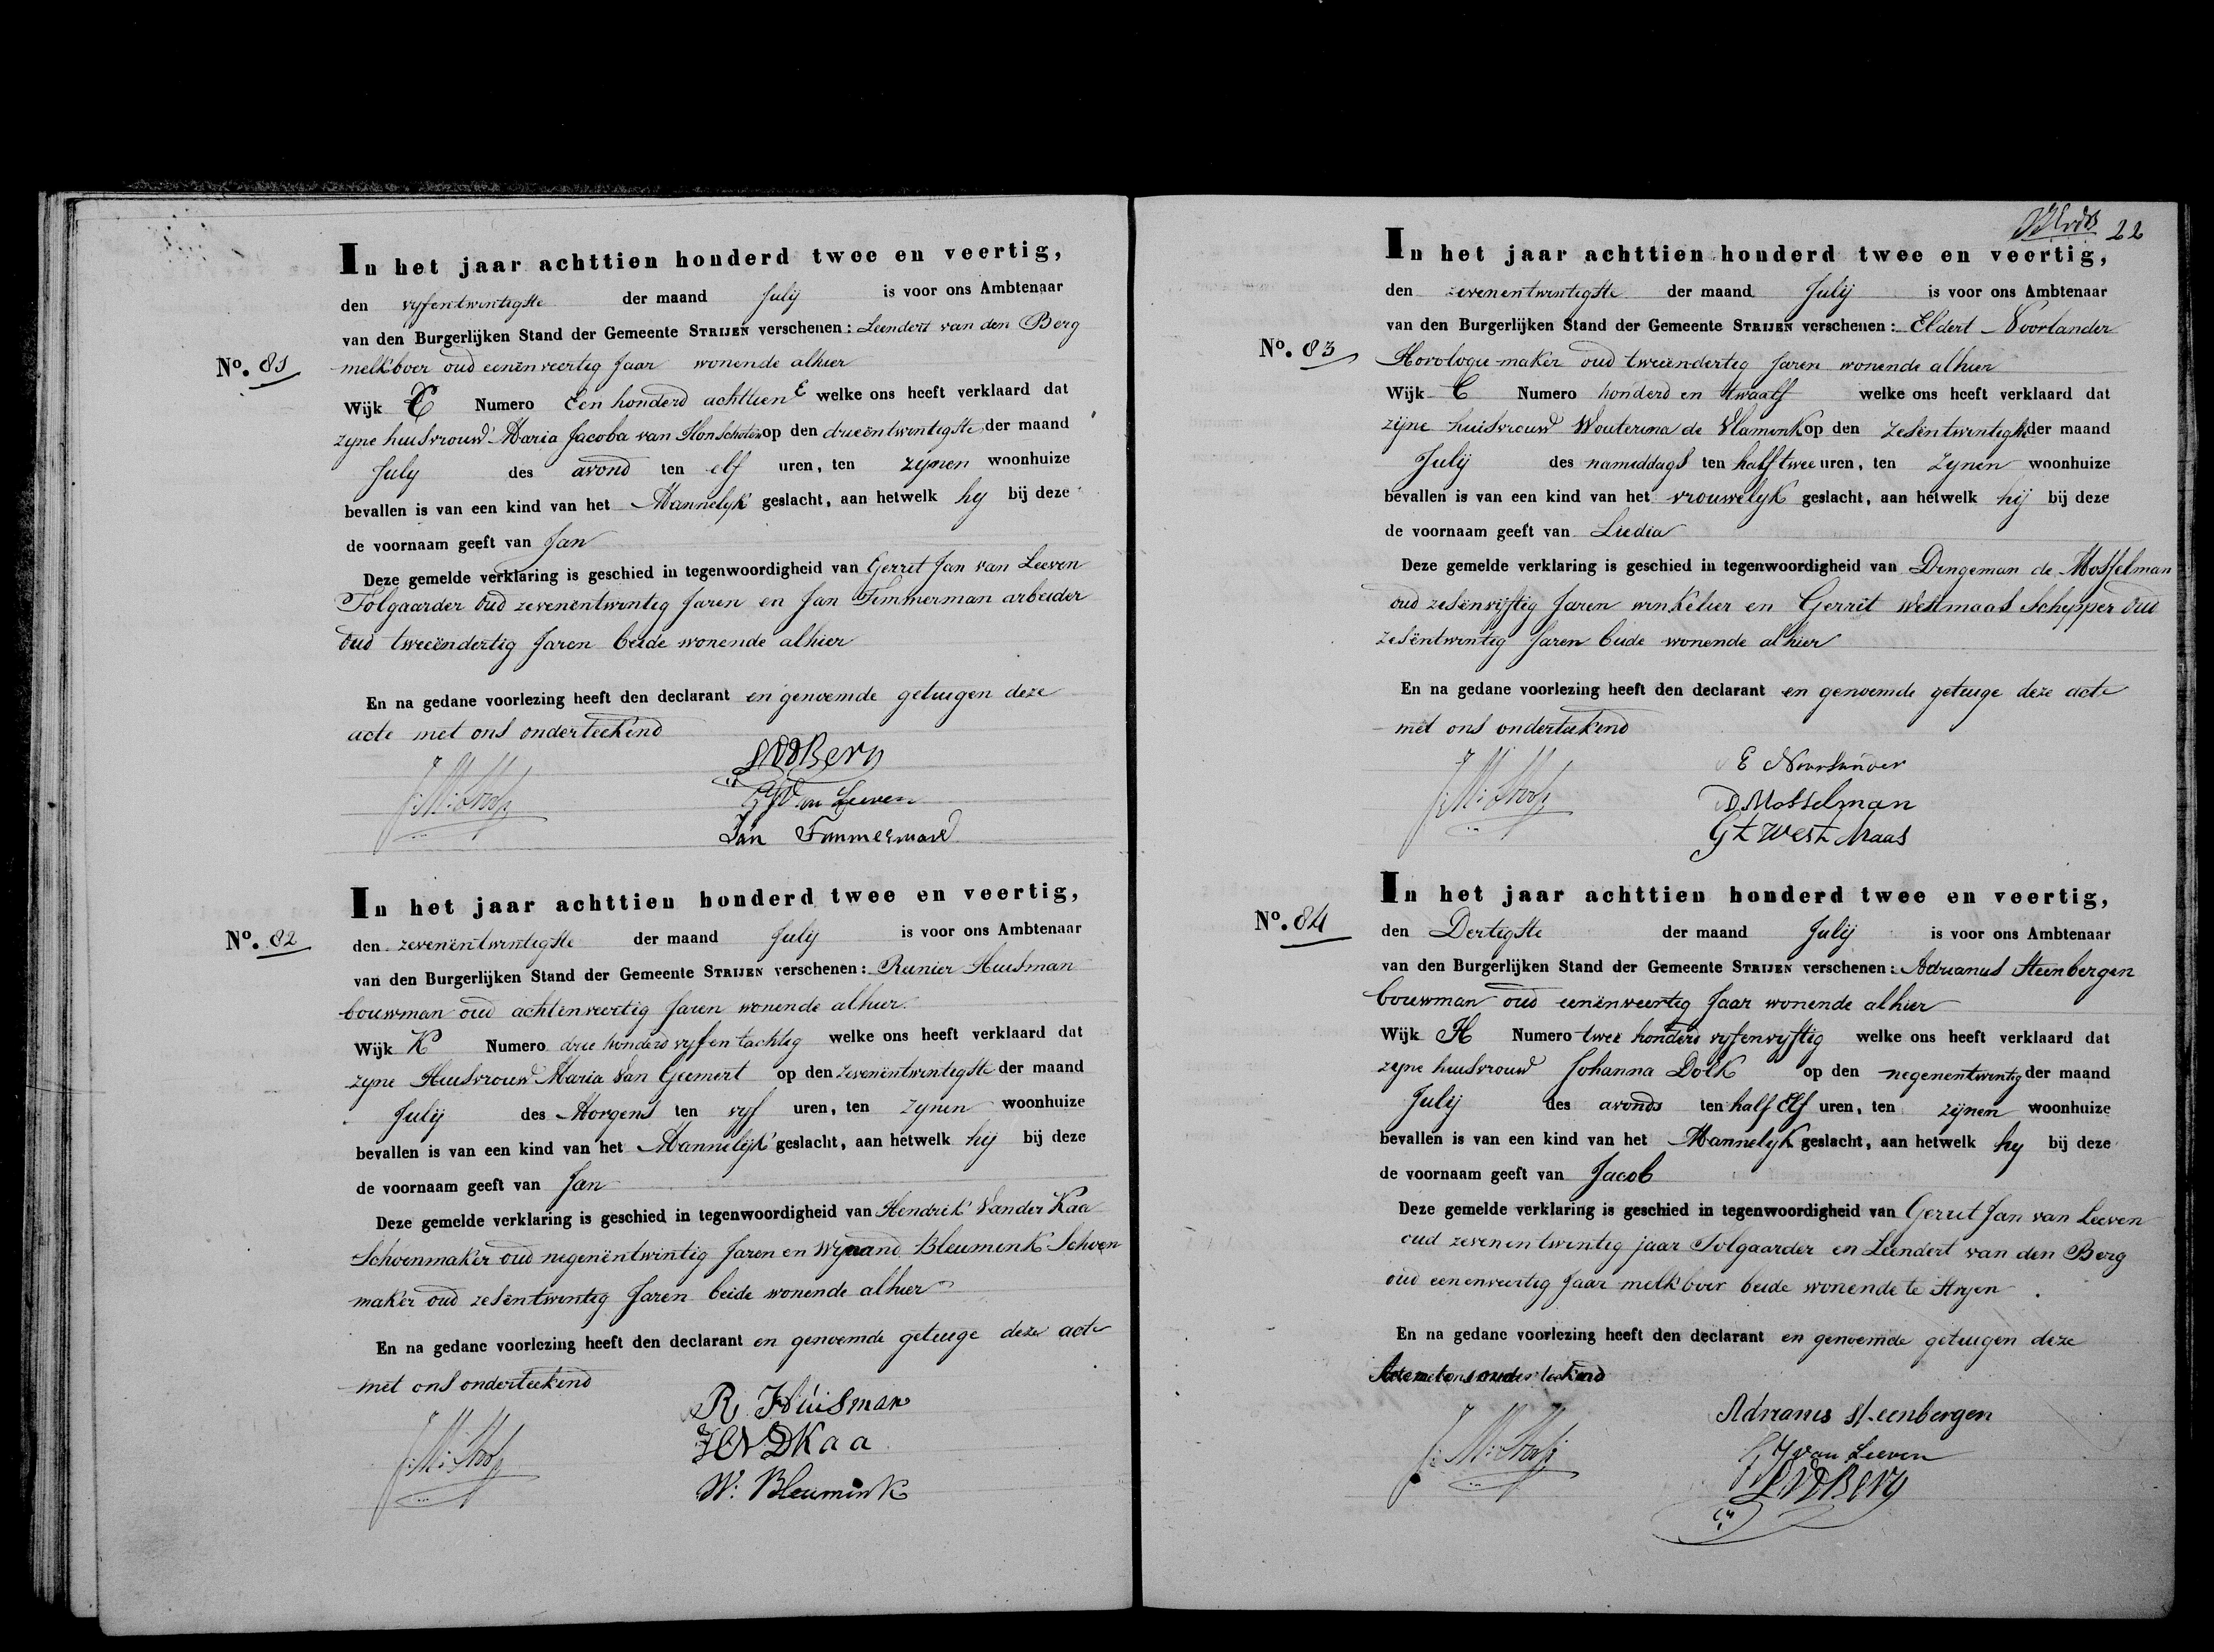 In het jaar achttien honderd twee en veertig,
den vyfentwintigste der maand July is voor ons Ambtenaar
van den Burgerlijken Stand der Gemeente STRIJEN verschenen: Leendert van den Berg
No. 81
melkboer oud eenënveertig Jaar wonende alhier
Wijk C Numero Een honderd achttien E welke ons heeft verklaard dat
zyne huisvrouw Maria Jacoba van op den drieëntwintigste der maand
July des avond ten elf uren, ten zynen woonhuize
bevallen is van een kind van het Mannelyk geslacht, aan hetwelk hy bij deze
de voornaam geeft van Jan
Deze gemelde verklaring is geschied in tegenwoordigheid van Gerrit Jan van Leeven
Tolgaarder oud zevenëntwintig Jaren en Jan Timmerman arbeider
oud tweeëndertig Jaren beide wonende alhier
En na gedane voorlezing heeft den declarant en genoemde getuigen deze
acte met ons onderteekend
LVDBerg
GJ Van Leeven
Jan Timmerman
In het jaar achttien honderd twee en veertig,
No. 82
den zevenëntwintigste der maand July is voor ons Ambtenaar
van den Burgerlijken Stand der Gemeente STRIJEN verschenen: Reinier Huisman
bouwman oud achtenveertig Jaren wonende alhier
Wijk K Numero drie honderd vyf en tachtig welke ons heeft verklaard dat
zyne Huisvrouw Maria Van Geemert op den zevenëntwintigste der maand
July des Morgens ten vyf uren, ten zynen woonhuize
bevallen is van een kind van het Mannelijk geslacht, aan hetwelk hij bij deze
de voornaam geeft van Jan
Deze gemelde verklaring is geschied in tegenwoordigheid van Hendrik Vander Kaa
Schoenmaker oud negenëntwintig Jaren en Wynand Bleumink Schoen
maker oud zesëntwintig Jaren beide wonende alhier
En na gedane voorlezing heeft den declarant en genoemde getuige deze acte
met ons onderteekend
R Huisman
HVDKaa
W: Bleumink
22
In het jaar achttien honderd twee en veertig,
den zevenentwintigste der maand July is voor ons Ambtenaar
van den Burgerlijken Stand der Gemeente STRIJEN verschenen: Eldert Noorlander
No. 83
Horologie-maker oud tweeëndertig Jaren wonende alhier
Wijk C Numero honderd en twaalf welke ons heeft verklaard dat
zijne huisvrouw Wouterina de Vlamink op den zesëntwintigste der maand
July des namiddags ten half twee uren, ten zynen woonhuize
bevallen is van een kind van het vrouwelyk geslacht, aan hetwelk hij bij deze
de voornaam geeft van Liedia
Deze gemelde verklaring is geschied in tegenwoordigheid van Dingeman de Mosselman
oud zesënvijftig Jaren winkelier en Gerrit Westmaas Schipper oud
zesëntwintig Jaren beide wonende alhier
En na gedane voorlezing heeft den declarant en genoemde getuige deze acte
met ons onderteekend
E Noorlander
D Mosselman
Gt West Maas
In het jaar achttien honderd twee en veertig,
No. 84
den Dertigste der maand July is voor ons Ambtenaar
van den Burgerlijken Stand der Gemeente STRIJEN verschenen: Adrianus Steenbergen
bouwman oud eenënveertig Jaar wonende alhier
Wijk H Numero twee honderd vyfenvyftig welke ons heeft verklaard dat
zyne huisvrouw Johanna Dolk op den negenentwintig der maand
July des avonds ten half Elf uren, ten zijnen woonhuize
bevallen is van een kind van het Mannelyk geslacht, aan hetwelk hy bij deze
de voornaam geeft van Jacob
Deze gemelde verklaring is geschied in tegenwoordigheid van Gerrit Jan van Leeven
oud zevenentwintig jaar Tolgaarder en Leendert van den Berg
oud eenenveertig Jaar melkboer beide wonende te Stryen
En na gedane voorlezing heeft den declarant en genoemde getuigen deze
Acte met ons onderteekend
Adrianus Steenbergen
GJ van Leeven
LVDBerg